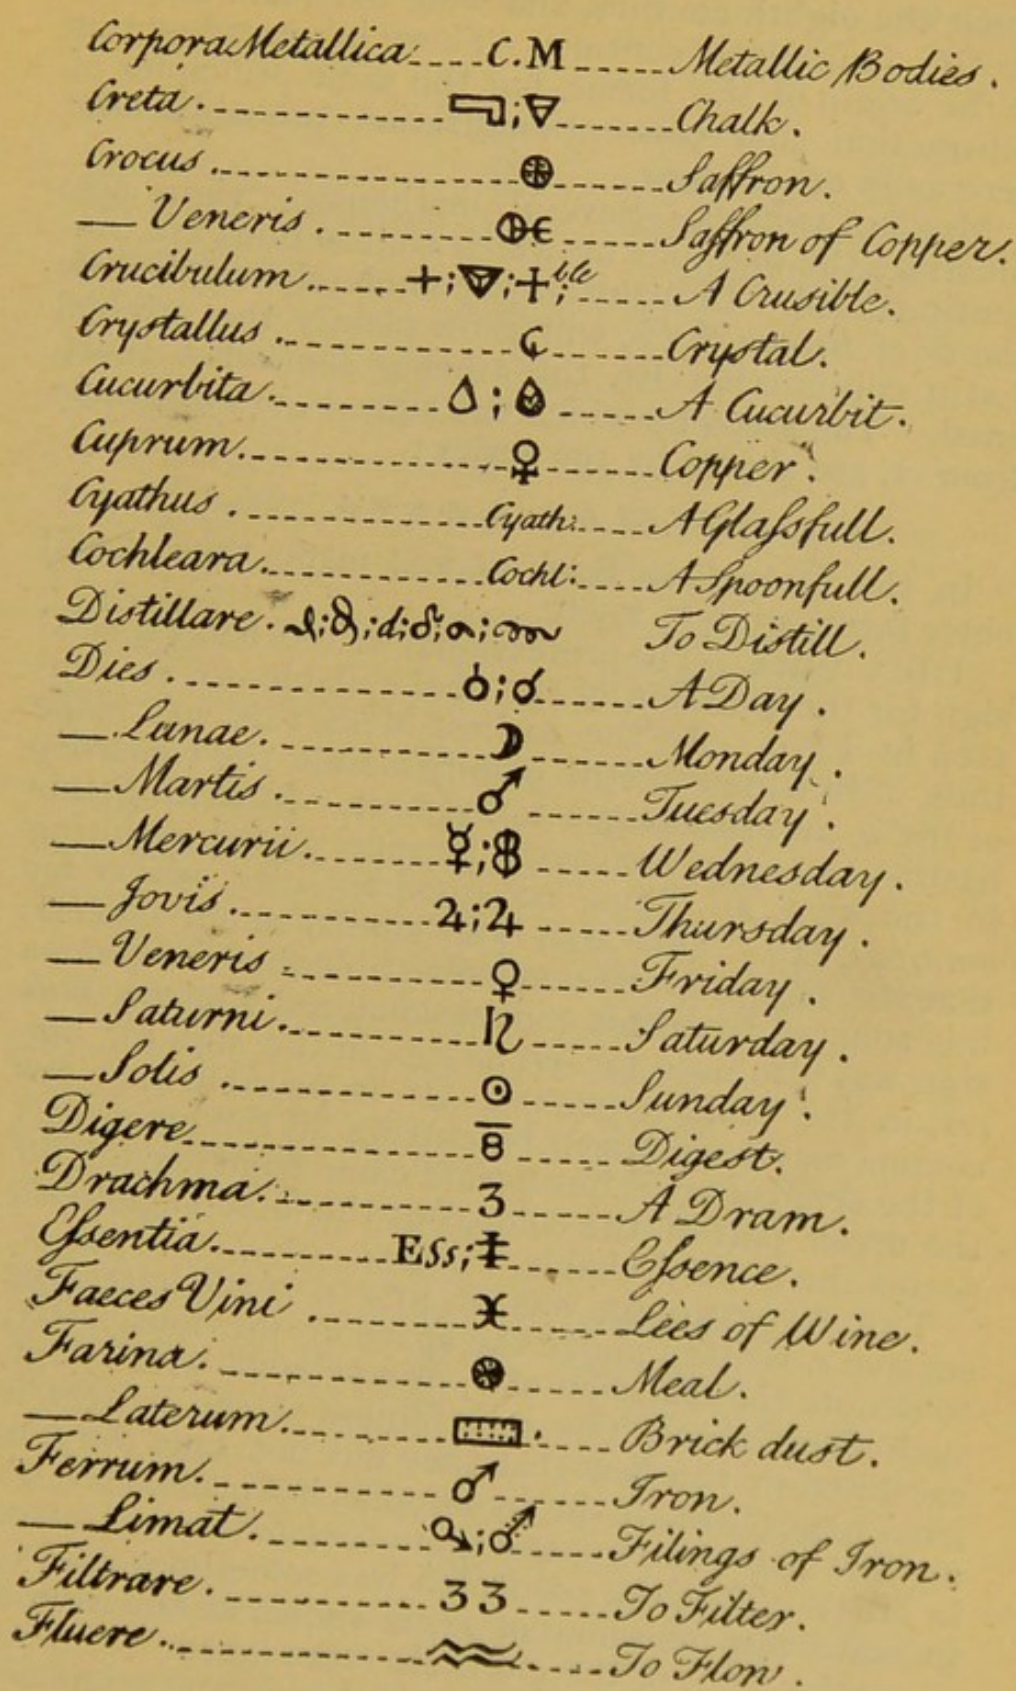 Corpora Metallica C.M Metallic Bodies.
Creta. ; Chalk.
Crocus Saffron.
— Veneris. Saffron of Copper.
Crucibulum. +; ; ble; A Crusible.
Crystallus. Crystal.
Cucurbita. ; A Cucurbit.
Cuprum. Copper.
Cyathus. Cyath: A Glaſsfull.
Cochleara. Cochl: A Spoonfull.
Distillare. ; ; d; δ; ; To Distill.
Dies. ; A Day.
— Lunae. ☽ Monday.
— Martis. ♂ Tuesday.
— Mercurii. ☿; Wednesday.
— Jovis. ♃; ♃ Thursday.
— Veneris. ♀ Friday.
— Saturni. ♄ Saturday.
— Solis. ☉ Sunday.
Digere 8̅ Digest.
Drachma. 3 A Dram.
Eſsentia. Ess; Eſsence.
Faeces Vini. Lees of Wine.
Farina. Meal.
— Laterum. Brick dust.
Ferrum. ♂ Iron.
— Limat. ; Filings of Iron.
Filtrare. 33 To Filter.
Fluere. To Flow.